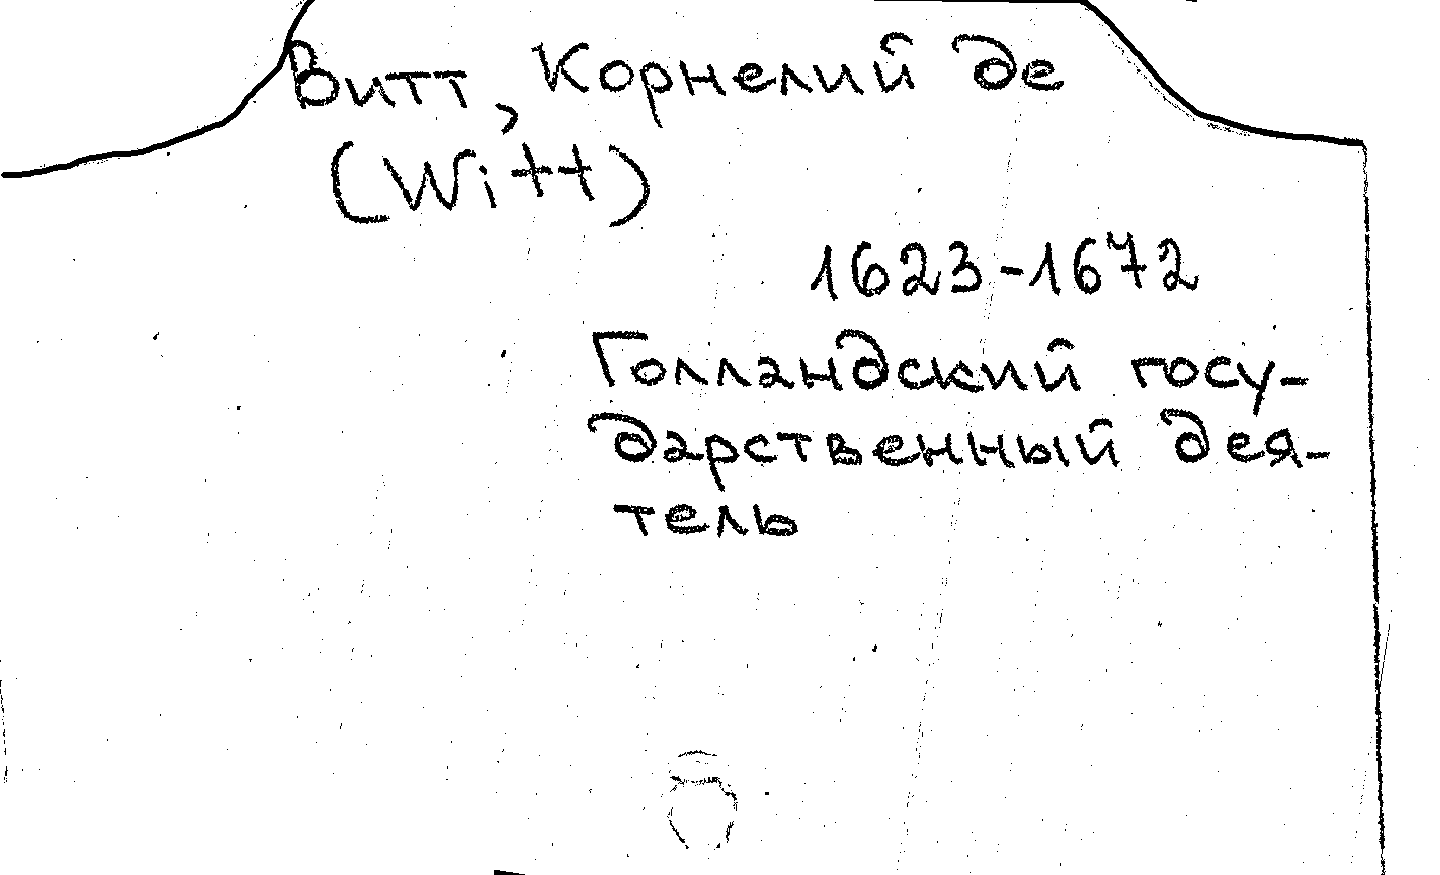 Витт, Корнелий де
(Witt)
1623-1672
Голландский госу-
дарственный дея-
тель